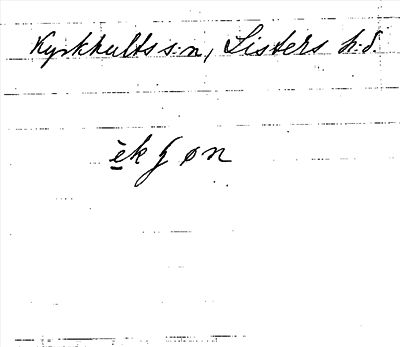 Kyrkhults s:n, Listers h:d.
è̠kʒøn